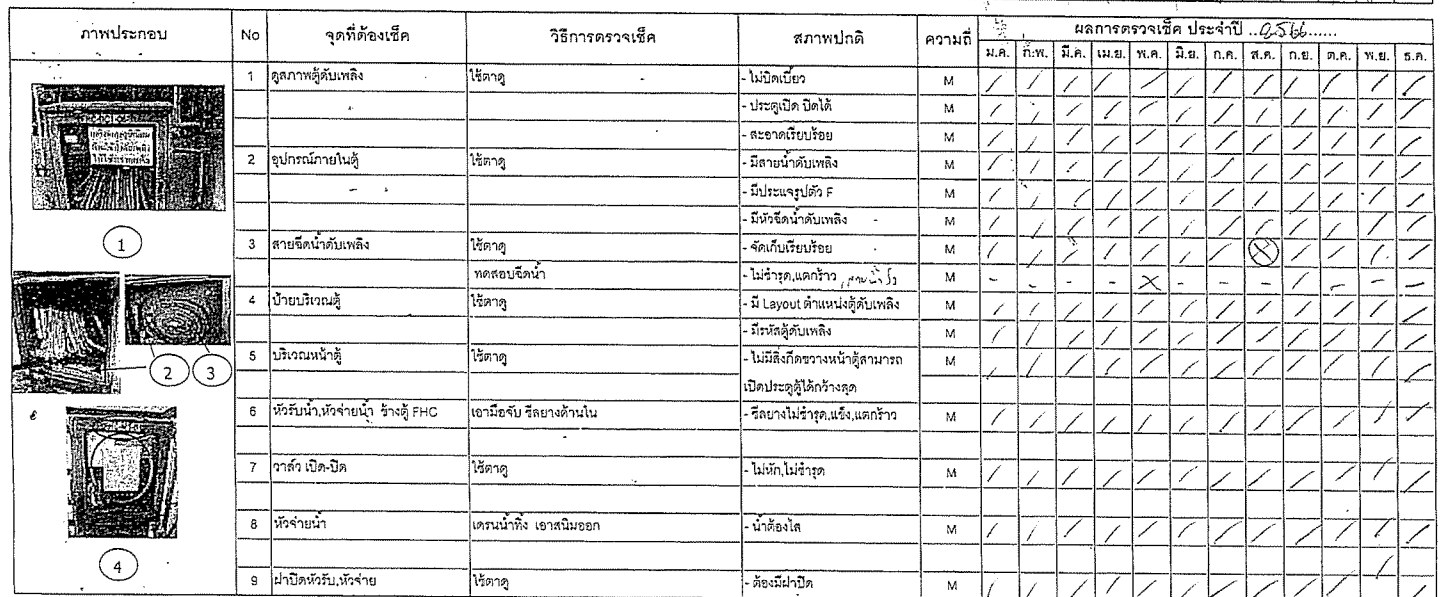 ภาพประกอบ No จุดที่ต้องเช็ค วิธีการตรวจเช็ค สภาพปกติ ความถี่ ผลการตรวจเช็ค ประจำปี ..2566......
ม.ค. ก.พ. มี.ค. เม.ย. พ.ค. มิ.ย. ก.ค. ส.ค. ก.ย. ต.ค. พ.ย. ธ.ค.
1 ดูสภาพตู้ดับเพลิง ใช้ตาดู - ไม่บิดเบี้ยว M / / / / / / / / / / / /
- ประตูเปิด ปิดได้ M / / / / / / / / / / / /
- สะอาดเรียบร้อย M / / / / / / / / / / / /
2 อุปกรณ์ภายในตู้ ใช้ตาดู - มีสายน้ำดับเพลิง M / / / / / / / / / / / /
- มีประแจรูปตัว F M / / / / / / / / / / / /
- มีหัวฉีดน้ำดับเพลิง M / / / / / / / / / / / /
1
3 สายฉีดน้ำดับเพลิง ใช้ตาดู - จัดเก็บเรียบร้อย M / / / / / / / X / / / /
ทดสอบฉีดน้ำ - ไม่ชำรุด,แตกร้าว M - - - - X - - - / - - -
4 ป้ายบริเวณตู้ ใช้ตาดู - มี Layout ตำแหน่งตู้ดับเพลิง M / / / / / / / / / / / /
- มีรหัสตู้ดับเพลิง M / / / / / / / / / / / /
5 บริเวณหน้าตู้ ใช้ตาดู - ไม่มีสิ่งกีดขวางหน้าตู้สามารถ M / / / / / / / / / / / /
2 3
เปิดประตูตู้ได้กว้างสุด
6 หัวรับน้ำ,หัวจ่ายน้ำ ข้างตู้ FHC เอามือจับ ซีลยางด้านใน - ซีลยางไม่ชำรุด,แข็ง,แตกร้าว M / / / / / / / / / / / /
7 วาล์ว เปิด-ปิด ใช้ตาดู - ไม่หัก,ไม่ชำรุด M / / / / / / / / / / / /
8 หัวจ่ายน้ำ เดรนน้ำทิ้ง เอาสนิมออก - น้ำต้องใส M / / / / / / / / / / / /
4
9 ฝาปิดหัวรับ,หัวจ่าย ใช้ตาดู - ต้องมีฝาปิด M / / / / / / / / / / / /